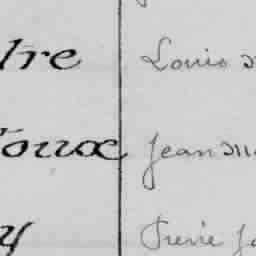 lre Louis
oux Jean
y Pierre